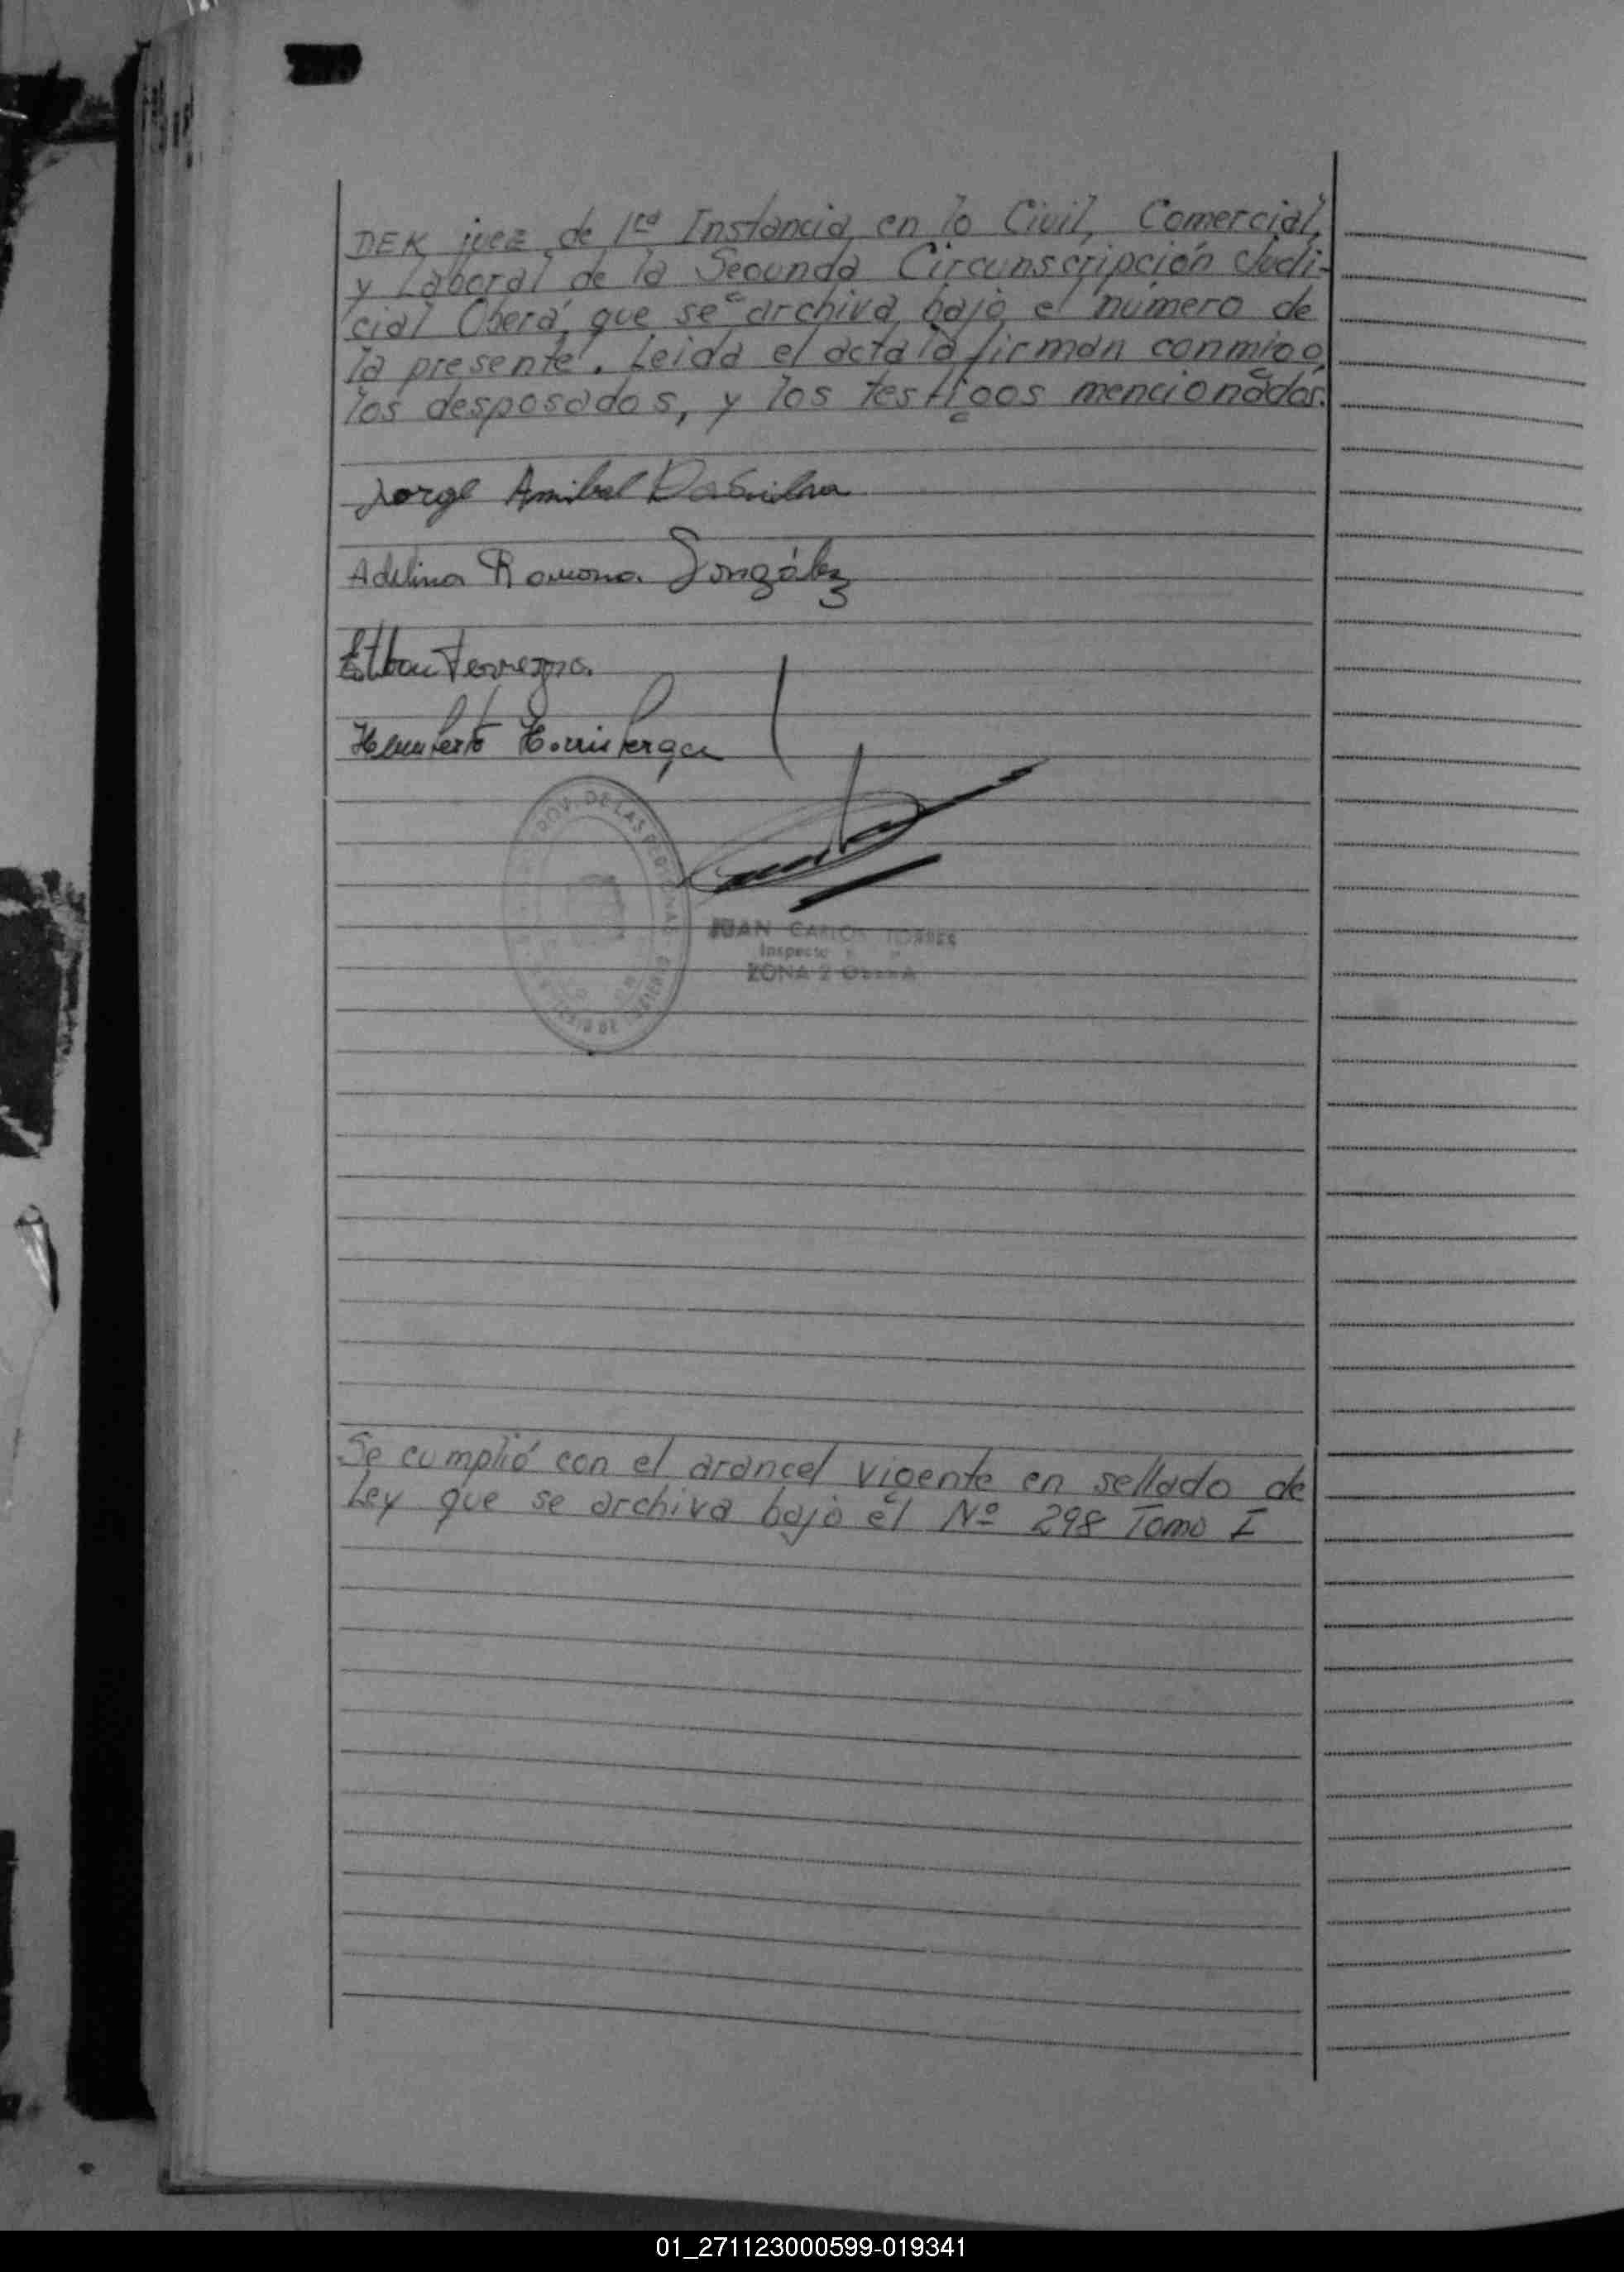 DEK juez de 1ra Instancia en lo Civil, Comercial,
y Laboral de la Segunda Circunscripción Judi-
cial Oberá, que se archiva bajo el número de
la presente. Leida el acta la firman conmigo,
los desposados, y los testigos mencionados.
Jorge Anibal DaSilva
Adelina Ramona González
Esteban Ferreyra
Humberto
PROV. DE LAS PERSONAS
JUAN CARLOS TORRES
Inspector
ZONA 2 OBERA
Se cumplió con el arancel vigente en sellado de
Ley que se archiva bajo el Nº 298 Tomo I
01_271123000599-019341